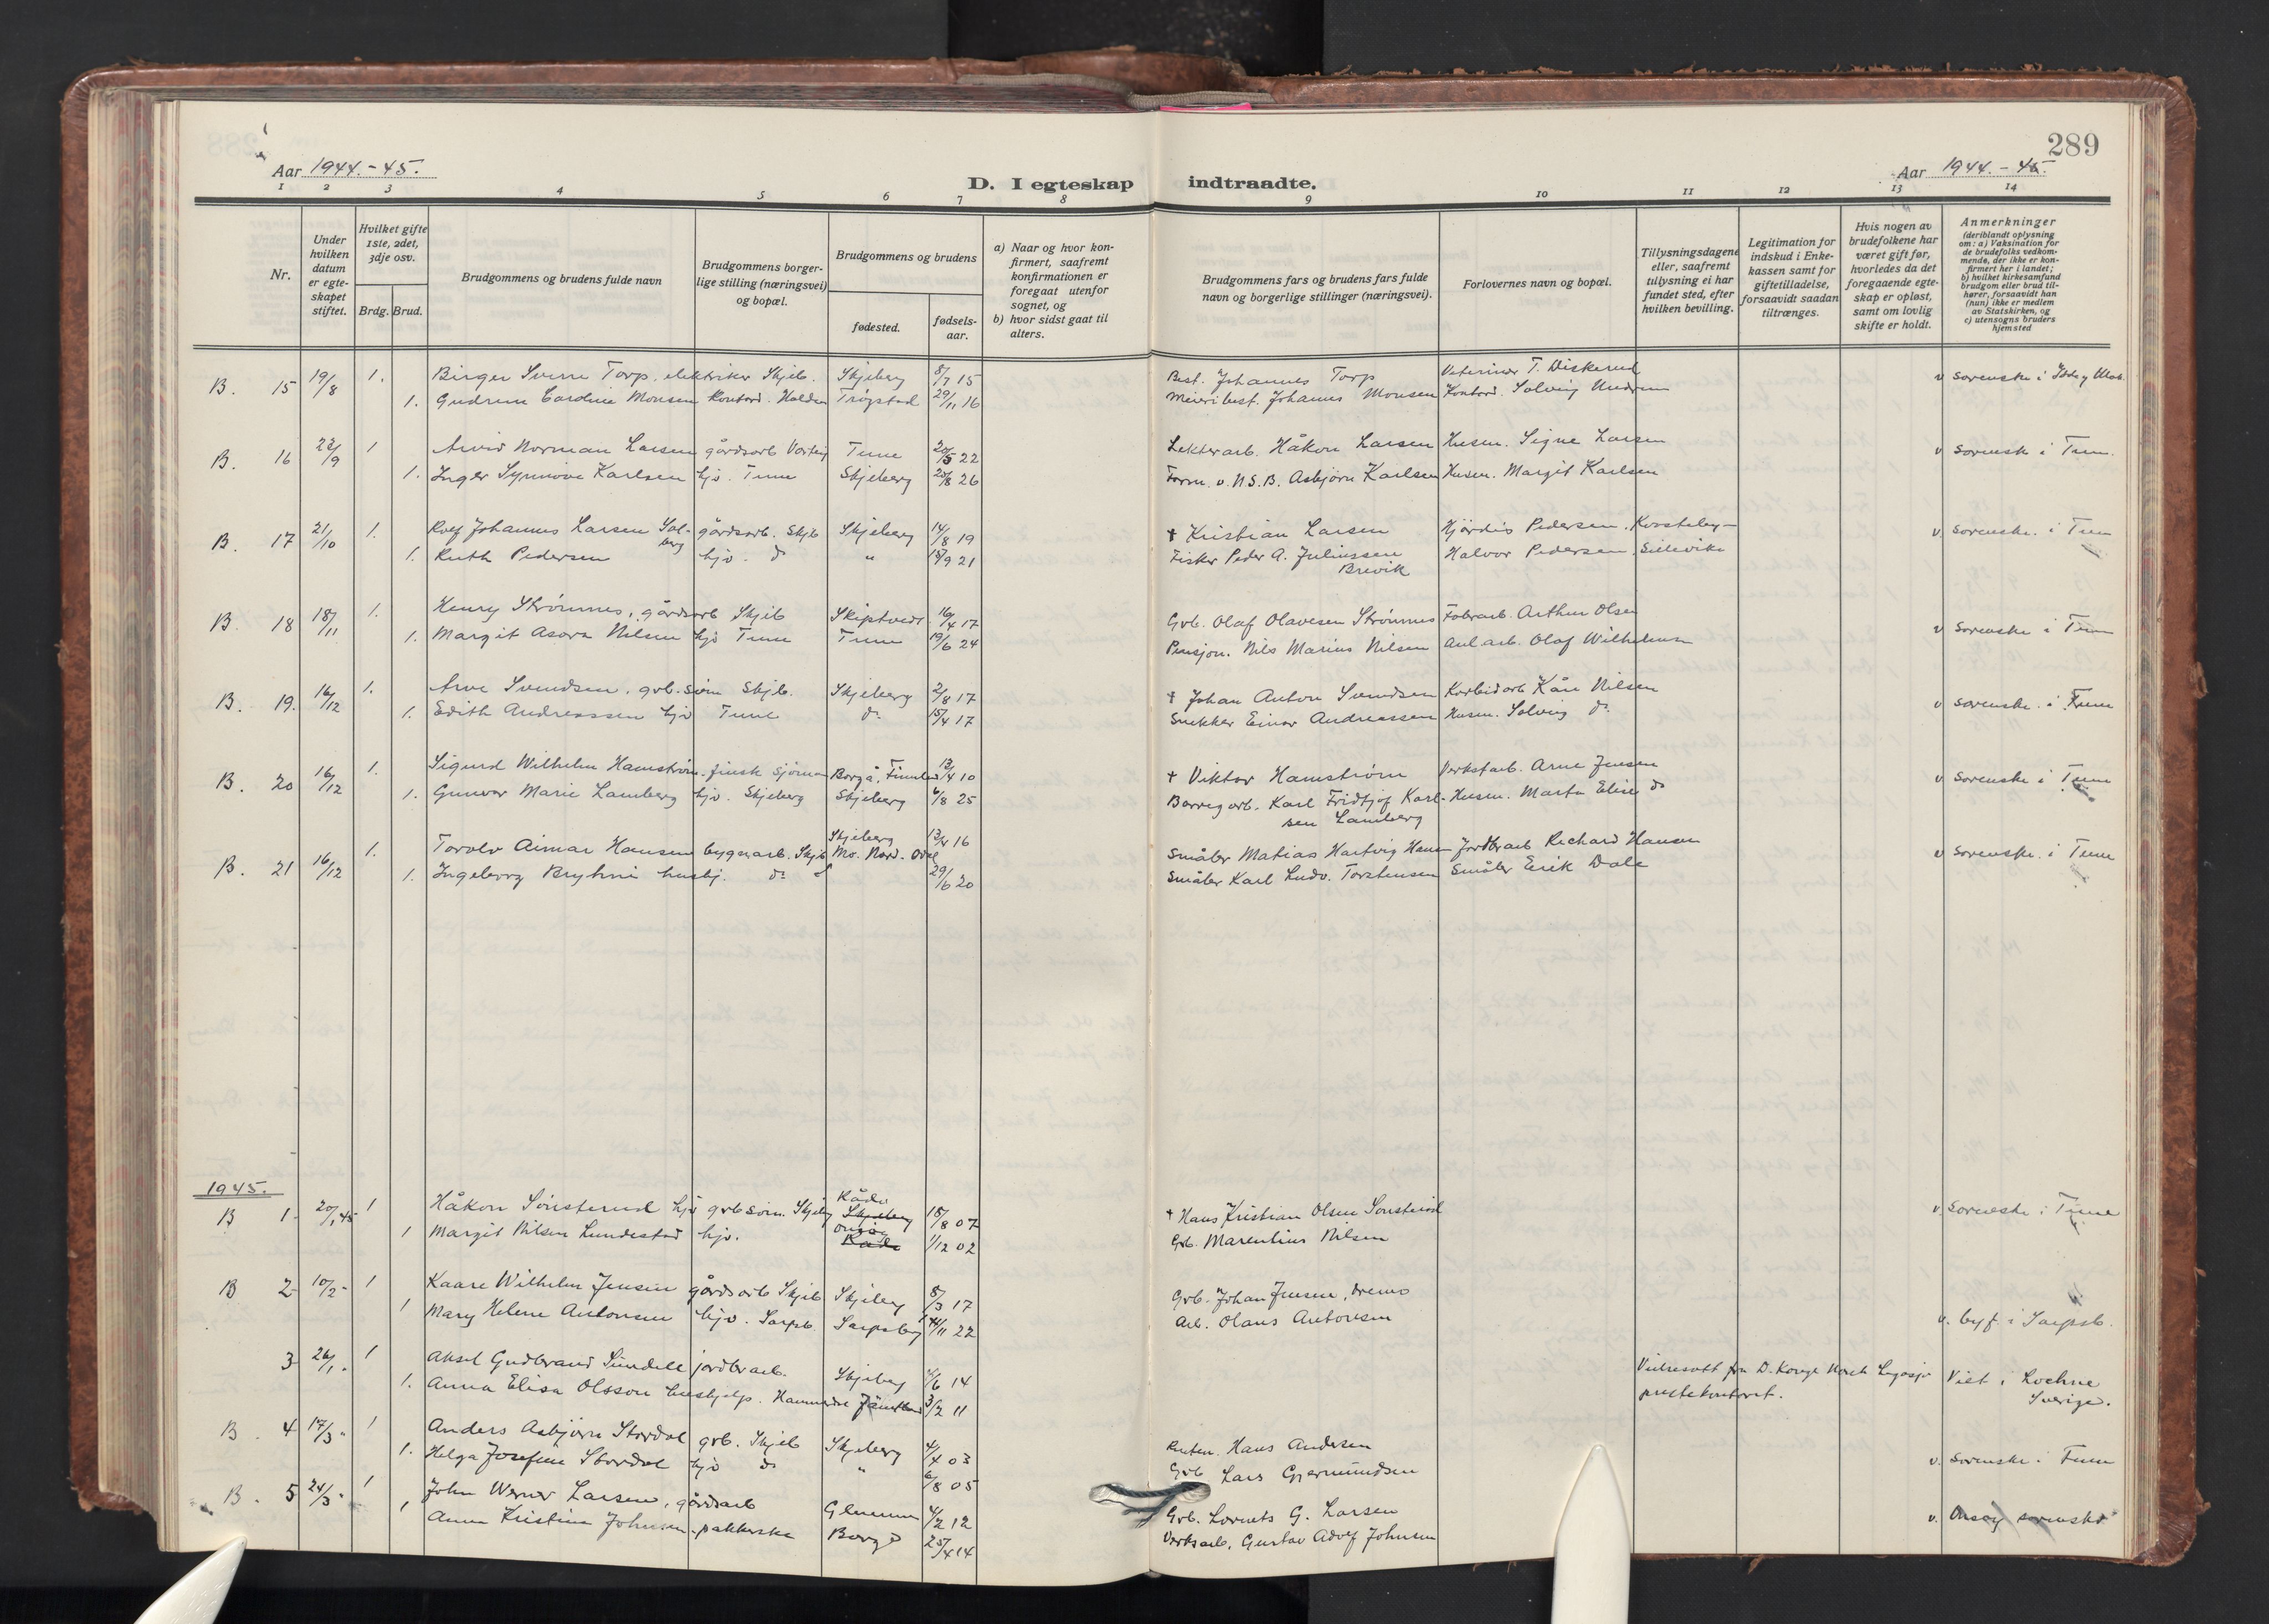 289
Aar 1944.-45.
Aar 1944.-45.
D. I egteskap indtraadte.
1 2 3 4 5 6 7 8 9 10 11 12 13 14
Nr.
Under hvilken datum er egte-skapet stiftet.
Hvilket gifte 1ste, 2det, 3dje osv.
Brdg. Brud.
Brudgommens og brudens fulde navn
Brudgommens borger-lige stilling (næringsvei) og bopæl.
Brudgommens og brudens
fødested.
fødsels-aar.
a) Naar og hvor kon-firmert, saafremt konfirmationen er foregaat utenfor sognet, og
b) hvor sidst gaat til alters.
Brudgommens fars og brudens fars fulde navn og borgerlige stillinger (næringsvei).
Forlovernes navn og bopæl.
Tillysningsdagene eller, saafremt tillysning ei har fundet sted, efter hvilken bevilling.
Legitimation for indskud i Enke-kassen samt for giftetilladelse, forsaavidt saadan tiltrænges.
Hvis nogen av brudefolkene har været gift før, hvorledes da det foregaaende egte-skap er opløst, samt om lovlig skifte er holdt.
Anmerkninger
(deriblandt oplysning om: a) Vaksination for de brudefolks vedkom-mende, der ikke er kon-firmert her i landet; b) hvilket kirkesamfund brudgom eller brud til-hører, forsaavidt han (hun) ikke er medlem av Statskirken, og c) utensogns bruders hjemsted
B. 15 19/8 1. Birger Sverre Torp, elektriker Skjeb. Skjeberg 8/7 15 Best. Johannes Torp Veterinær T. Diskerud v sorenskr i Idd og
1. Gudrun Cardine Monsen Kontord. Halden Trøgstad 29/11 16 Meieribest. Johannes Monsen Kontord. Solveig
B. 16 22/9 1 Arvid Norman Larsen gårdsarb Varteig Tune 20/5 22 Lekterarb. Håkon Larsen Husm. Signe Larsen v sorensk i Tun.
1. Inger Synnøve Karlsen hjv. Tune Skjeberg 20/8 26 Form. v. N.S.B. Asbjørn Karlsen Husm. Margit Karlsen
B. 17 21/10 1. Rolf Johannes Larsen Sol-berg gårdsarb. Skjb Skjeberg 14/8 19 † Kristian Larsen Hjørdis Pedersen, v. sorenskr. i Tun
1. Ruth Pedersen hjv. do " 18/9 21 Fisker Peder A. Juliussen Brevik Halvor Pedersen,
B. 18 18/11 1. Henry Strømnes, gårdsarb Skjeb Skiptvedt 16/4 17 Grb. Olaf Olavesen Strømnes Fabrarb. Arthur Olsen v sorenskr i Tun
1. Margit Asora Nilsen hjv Tune Tune 19/6 24 Pensjon. Nils Marius Nilsen Anl arb. Olaf Wilhelmsen
B. 19. 16/12 1. Arve Svendsen, grb. sønn Skjb. Skjeberg 2/8 17 † Johan Anton Svendsen Karbidarb Kåre Nilsen v sorenskr. i Tune
1. Edith Andreassen hjv Tune do 15/4 17 Snekker Einar Andreassen Husm. Solveig do
B. 20 16/12 1. Sigurd Wilhelm Hamstrøm, finsk sjömann Borgå, Finnland 13/4 10 † Viktor Hamstrøm Verkstarb. Arne Jensen v sorenskr i Tune
1. Gunvor Marie Lamberg hjv. Skjeberg Skjeberg 6/8 25 Borregarb. Karl Fridtjof Karl-sen Lamberg Husm. Marta Elise do
B. 21 16/12 1. Torolv Aimar Hansen bygnarb. Skjb Skjeberg 13/4 16 Småbr Matias Hartvig Hansen Jordbrarb Richard Hansen v sorenskr. i Tune
1. Ingeborg Bryhni husbj. do Mo. Nord-Odal 29/6 20 Småbr Karl Ludv. Torstensen Småbr Erik Dale
1945.
B 1. 20/1 45 1 Håkon Sønsterud hjv grb sønn. Skjebg Råde Skjeberg 18/8 07 † Hans Kristian Olsen Sønsterød v. sorenskr i Tune
1 Margit Nilsen Lundestad hjv. Onsøy Råde 1/12 02 Grb. Marentius Nilsen
B 2 10/2 - 1 Kaare Wilhelm Jensen gårdsarb Skjeb Skjeberg 8/3 17 Grb. Johan Jensen,
1 Mary Helene Antonsen hjv. Sarpsb. Sarpsborg 14/11 22 Arb. Olaus Antonsen v. byf. i Sarpsb.
3 26/1 - 1 Aksel Gudbrand Sundell jordbrarb. Skjeberg /6 14 Vielsesatt fra D. Konge Norsk Legasjo Viet i Lockne Sverige.
1. Anna Elisa Olsson hushjelp. Hammerdal Jämtland 3/2 11 prestekontoret.
B. 4 17/3 " 1 Anders Asbjørn Stordal grb. Skjeb Skjeberg 4/4 03 Ruten. Hans Andersen
1. Helga Josefine Stordal hjv do " 6/8 05 Grb Lars Gjermundsen v. sorenskr. i Tune
B. 5 24/3 " 1 John Werner Larsen, gårdsarb Glemmen 4/2 12 Grb. Lorents G. Larsen v. Onsøy sorenskr
1 Anna Kristine Johnsen - pakkerske Borge 25/4 14 Verksarb. Gustav Adolf Johnsen